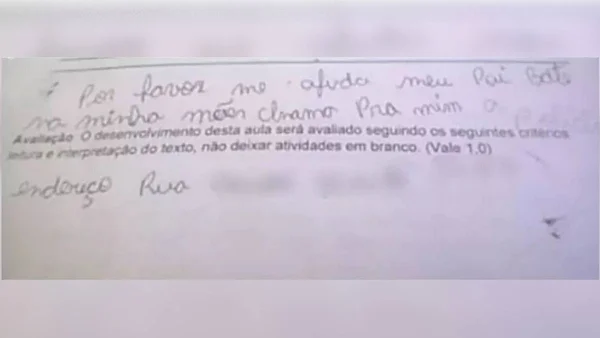 Por favor me ajuda meu Pai Bate
na minha mãen chramo Pra mim a
Avaliação O desenvolvimento desta aula será avaliado seguindo os seguintes critérios
leitura e interpretação do texto, não deixar atividades em branco. (Vale 1,0)
endereço Rua